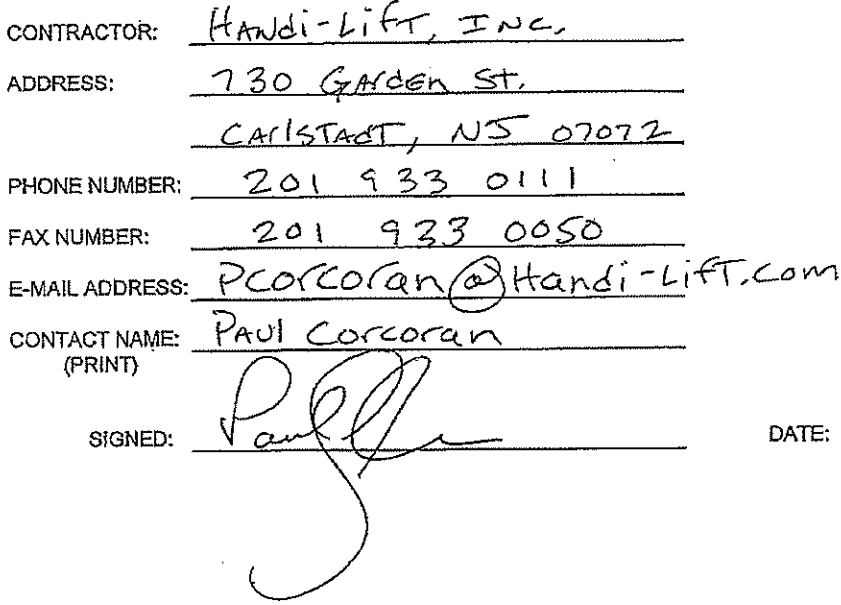 CONTRACTOR: HANdi-LifT, INC.
ADDRESS: 730 GArdEn St.
CArlSTAdT, NJ 07072
PHONE NUMBER: 201 933 0111
FAX NUMBER: 201 933 0050
E-MAIL ADDRESS: Pcorcoran@Handi-LifT.com
CONTACT NAME: PAUl Corcoran
(PRINT)
SIGNED: Paul
DATE: